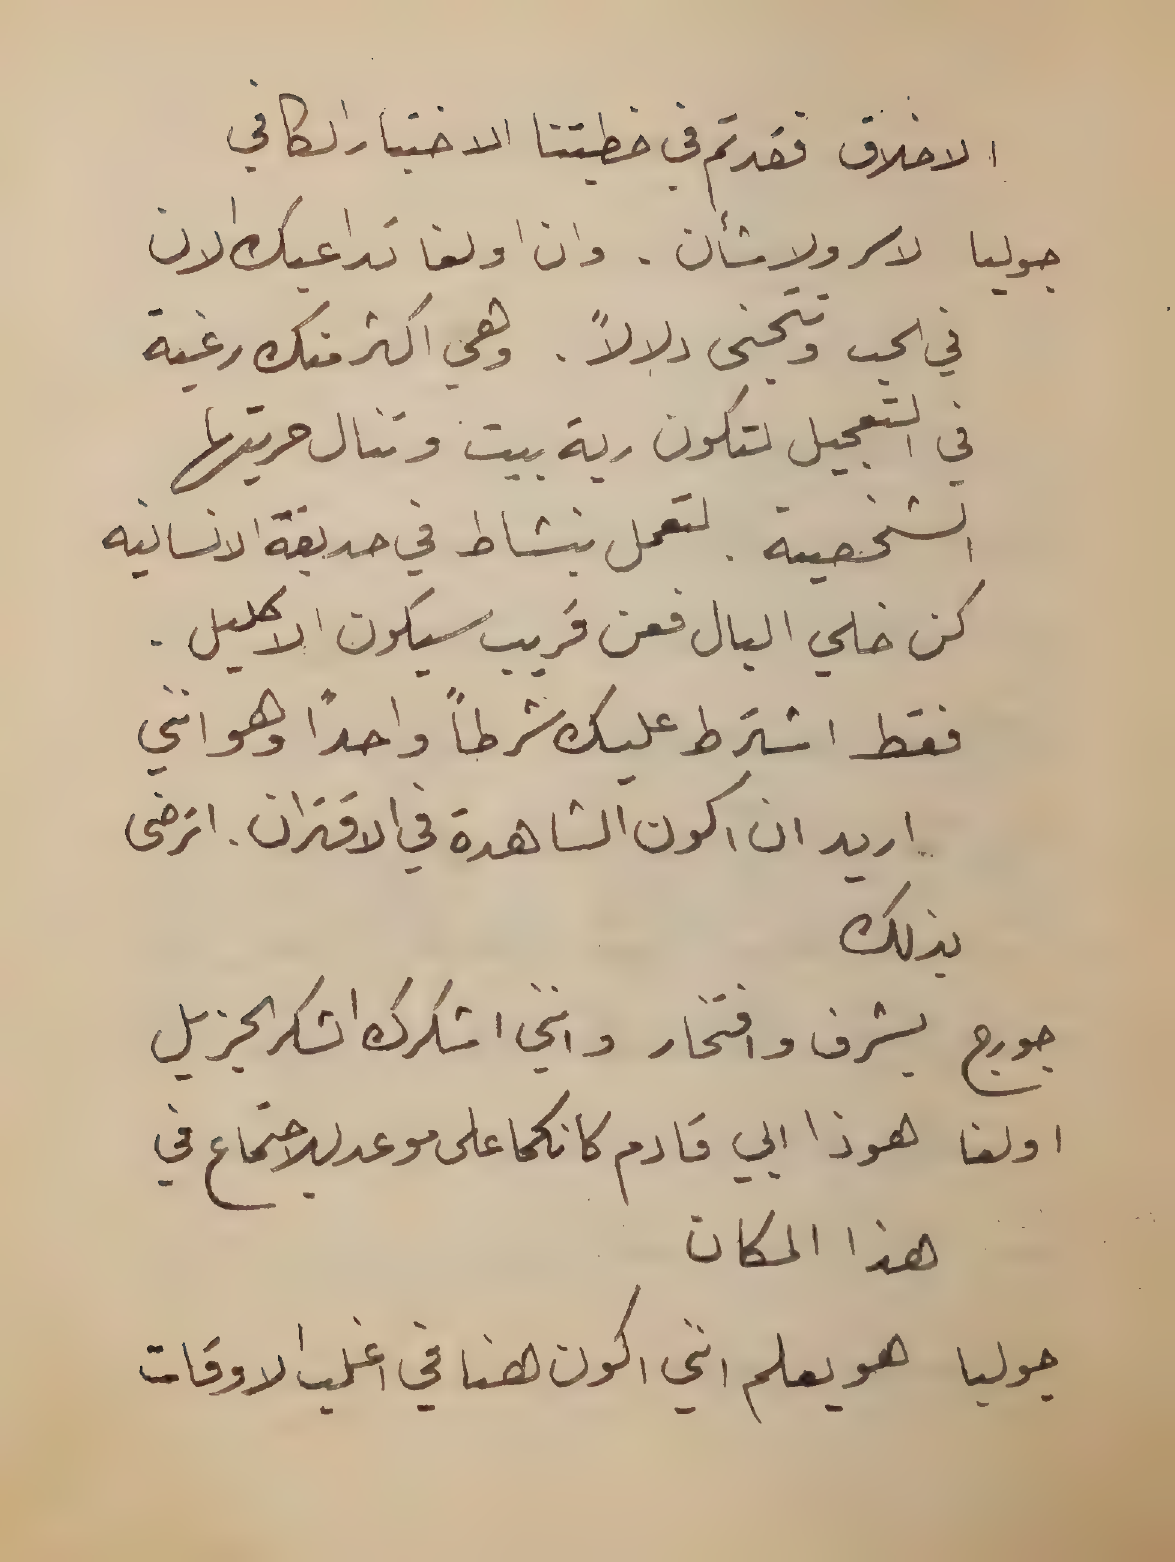 الاخلاق فقد تم في خطيتنا الاختبار الكافي
جوليا لاسر ولا شأن . وان اولغا تداعبك الان
في الحب وتتجنى دلالاً . وهي اكثر منك رغبة
في التعجيل لتكون ربة بيت وتنال حريتها
الشخصية . لتعمل بنشاط في حديقة الانسانية
كن خلي البال فعن قريب سيكون الاكليل .
فقط اشترط عليك شرطاً واحداً وهو انني
اريد ان اكون الشاهدة في الاقتران . اترضى
بذلك
جورج بشرف وافتخار وانني اشكرك الشكر الجزيل
اولغا هوذا ابي قادم كانكما على موعد للاجتماع في
هذا المكان
جوليا هو يعلم انني اكون هنا في اغلب الاوقات